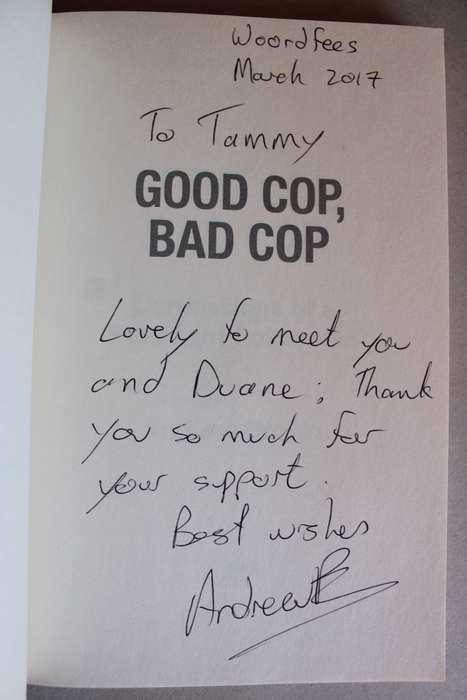 Woordfees
March 2017
To Tammy
GOOD COP,
BAD COP
Lovely to meet you
and Duane; Thank
you so much for
your support.
Best wishes
Andrew B